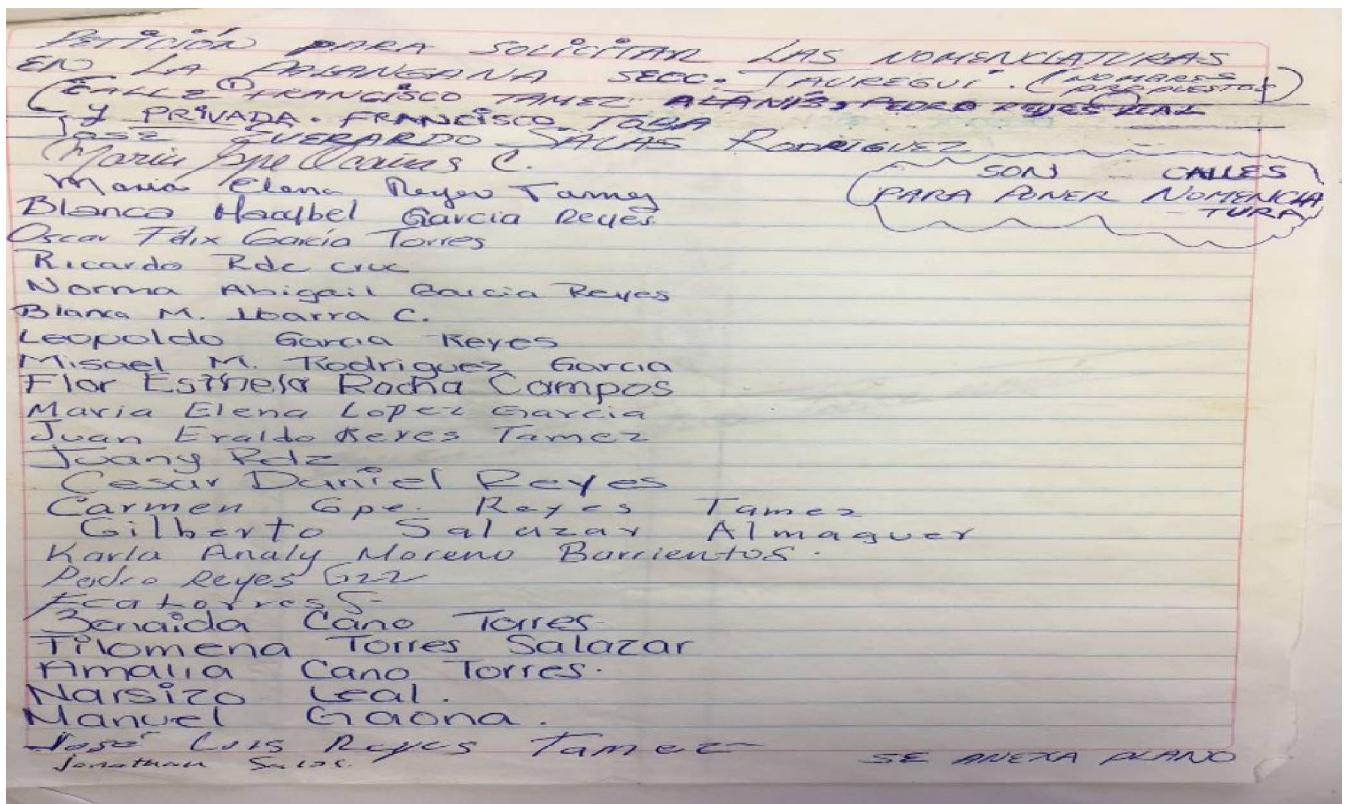 PETICIÓN PARA SOLICITAR LAS NOMENCLATURAS
EN LA PALANGANA SECC. JAUREGUI. (NOMBRES PROPUESTOS)
(CALLE FRANCISCO TAMEZ ALANÍS, PEDRO REYES LEAL
Y PRIVADA. FRANCISCO TOBA
JOSE EVERARDO SALAS RODRIGUEZ
SON CALLES
PARA PONER NOMENCLA
TURA
Maria Gpe C.
Maria Elena Reyes Tamez
Blanca Garcia Reyes
Oscar Félix García Torres
Ricardo Rdz cruz
Norma Abigail Garcia Reyes
Blanca M. Ibarra C.
Leopoldo Garcia Reyes
Misael M. Rodriguez Garcia
Flor Esthela Rocha Campos
Maria Elena Lopez Garcia
Juan Eraldo Reyes Tamez
Juany Rdz
Cesar Daniel Reyes
Carmen Gpe. Reyes Tamez
Gilberto Salazar Almaguer
Karla Analy Moreno Barrientos.
Pedro Reyes Gzz
Fca torres S.
Zenaida Cano Torres
Filomena Torres Salazar
Amalia Cano Torres.
Narsizo Leal.
Manuel Gaona.
José Luis Reyes Tamez
Jonathan Salas.
SE ANEXA PLANO